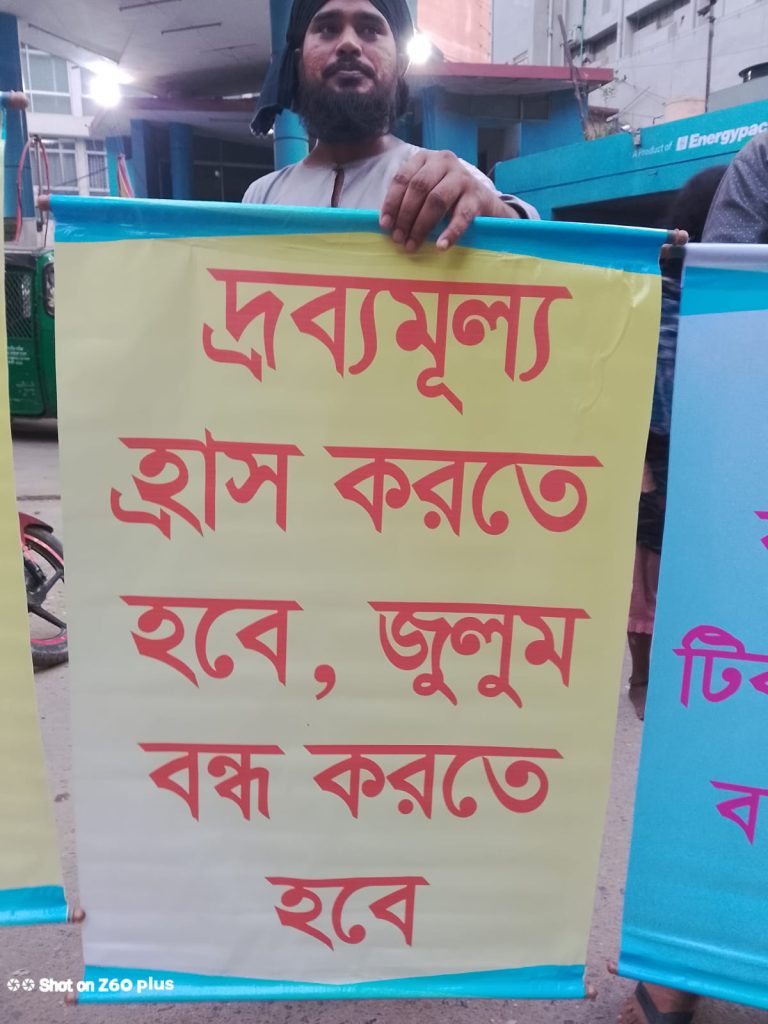 A Product of Energypac
দ্রব্যমূল্য
হ্রাস করতে
হবে, জুলুম
বন্ধ করতে
হবে
Shot on Z60 plus